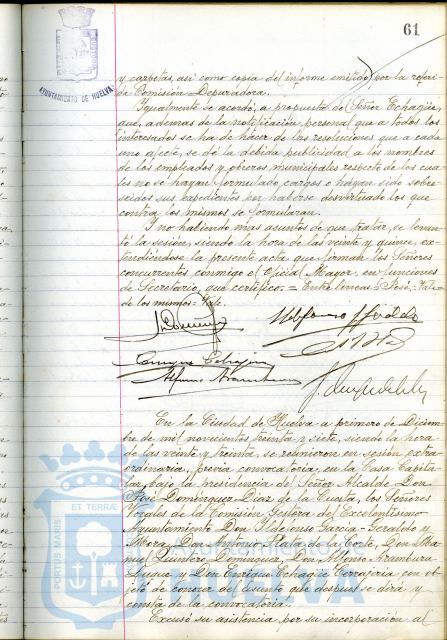 61
AYUNTAMIENTO DE HUELVA
y carpetas, así como copia del informe emitido por la referi-
da Comisión Depuradora.
Igualmente se acordó, a propuesta del Señor Echagüe,
que, además de la notificación personal que a todos los
interesados se ha de hacer de las resoluciones que a cada
uno afecte, se dé la debida publicidad a los nombres
de los empleados y obreros municipales respecto de los cua-
les no se hayan formulado cargos o hayan sido sobre-
seidos sus expedientes por haberse desvirtuado los que
contra los mismos se formularan.
Y no habiendo mas asuntos de que tratar, se levan-
tó la sesión, siendo la hora de las veinte y quince, ex-
tendiéndose la presente acta que firman los Señores
concurrentes conmigo el Oficial Mayor, en funciones
de Secretario, que certifico; = Entre lineas = José = Vale =
de los mismos = Vale.
En la Ciudad de Huelva a primero de Diciem-
bre de mil novecientos treinta y siete, siendo la hora
de las veinte y treinta, se reunieron en sesión extra-
ordinaria, previa convocatoria, en la Casa Capitu-
lar, bajo la presidencia del Señor Alcalde Don
José Dominguez Diaz de la Cuesta, los Señores
Vocales de la Comisión Gestora del Excelentísimo
Ayuntamiento Don Ildefonso Garcia-Geraldo y
Mora, Don Antonio Plata de la Corte, Don Ma-
nuel Quintero Dominguez, Don Alfonso Aramburu
Luque y Don Enrique Echagüe Cerrajería con ob-
jeto de conocer del asunto que después se dirá y
consta de la convocatoria.
Excusó su asistencia por su incorporación al
ET TERRÆ
PORTUS MARIS
Ayuntamiento de
HUELVA